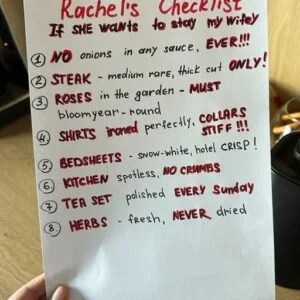 Rachel's Checklist
If SHE wants to stay my wifey
① NO onions in any sauce, EVER!!!
② STEAK - medium rare, thick cut ONLY!
③ ROSES in the garden - MUST
bloom year-round
④ SHIRTS ironed perfectly, COLLARS
STIFF!!!
⑤ BEDSHEETS - snow-white, hotel CRISP!
⑥ KITCHEN spotless, NO CRUMBS
⑦ TEA SET polished EVERY Sunday
⑧ HERBS - fresh, NEVER dried